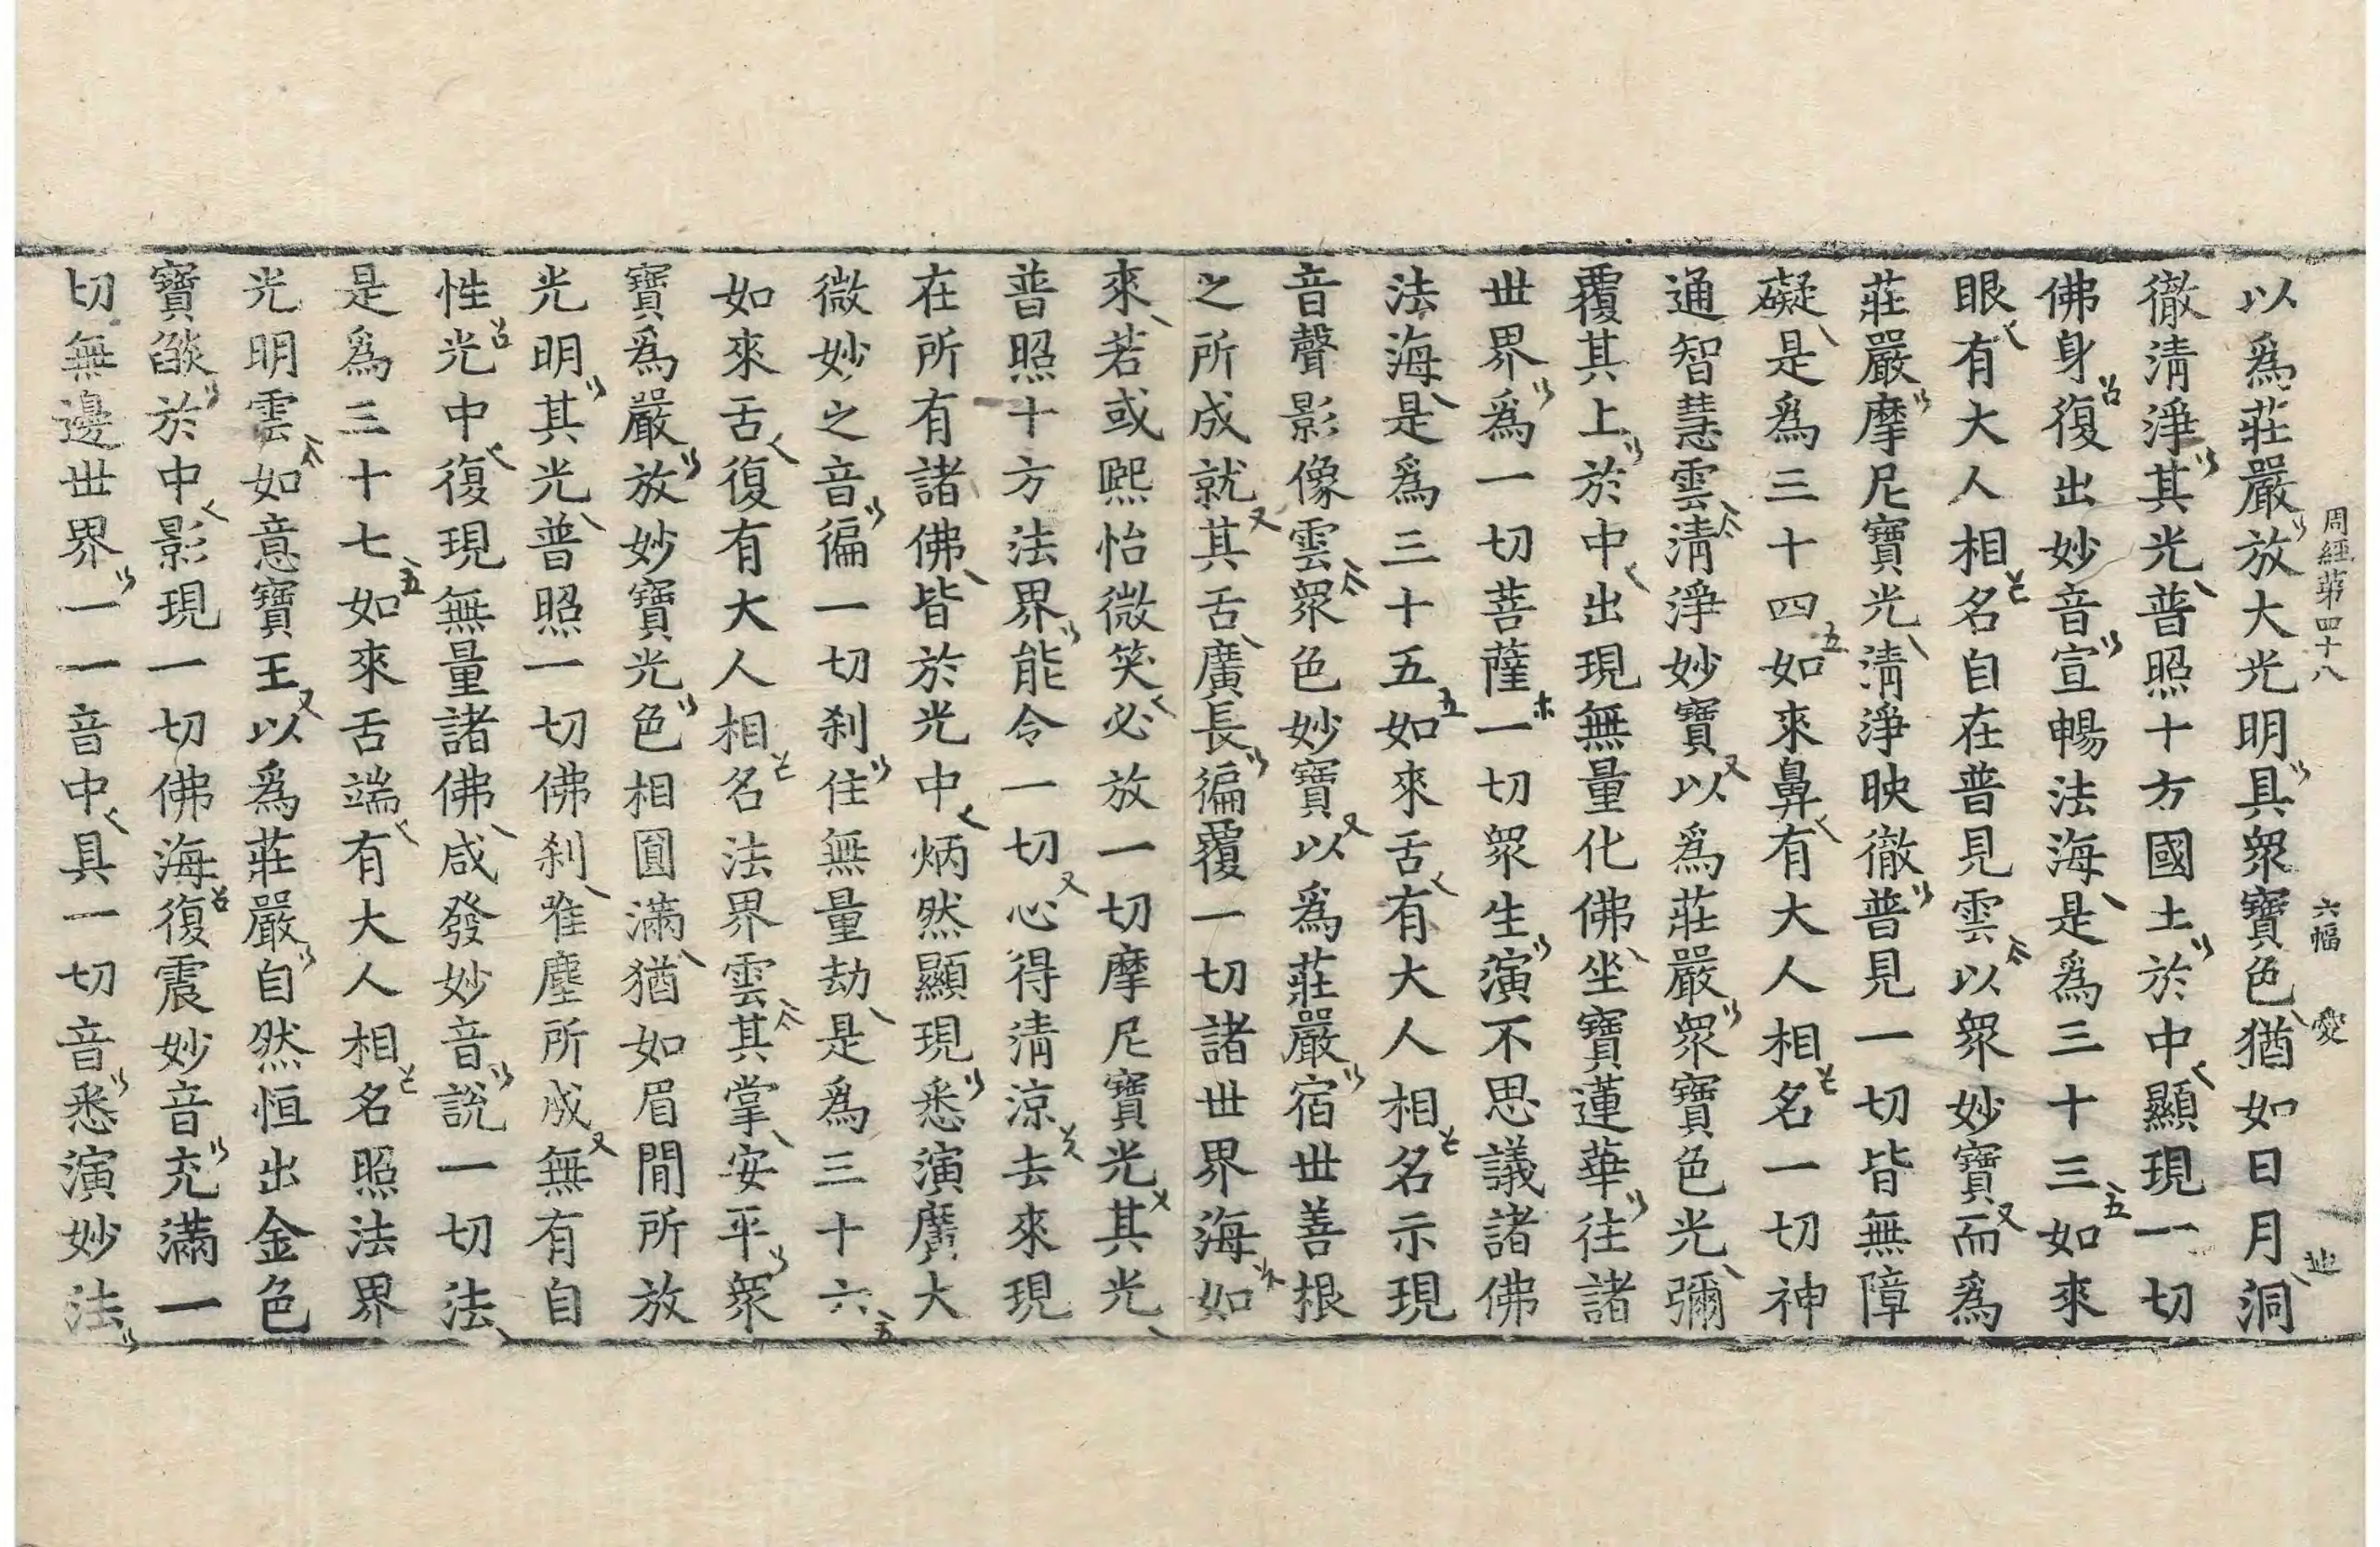 周經第四十八 六幅 愛
以爲莊嚴放大光明具衆寶色猶如日月洞
徹淸淨其光普照十方國土於中顯現一切
佛身復出妙音宣暢法海是爲三十三如來
眼有大人相名自在普見雲以衆妙寶而爲
莊嚴摩尼寶光淸淨映徹普見一切皆無障
礙是爲三十四如來鼻有大人相名一切神
通智慧雲淸淨妙寶以爲莊嚴衆寶色光彌
覆其上於中出現無量化佛坐寶蓮華往諸
世界爲一切菩薩一切衆生演不思議諸佛
法海是爲三十五如來舌有大人相名示現
音聲影像雲衆色妙寶以爲莊嚴宿世善根
之所成就其舌廣長徧覆一切諸世界海如
來若或熙怡微笑必放一切摩尼寶光其光
普照十方法界能令一切心得淸涼去來現
在所有諸佛皆於光中炳然顯現悉演廣大
微妙之音徧一切刹住無量劫是爲三十六
如來舌復有大人相名法界雲其掌安平衆
寶爲嚴放妙寶光色相圓滿猶如眉間所放
光明其光普照一切佛刹唯塵所成無有自
性光中復現無量諸佛咸發妙音說一切法
是爲三十七如來舌端有大人相名照法界
光明雲如意寶王以爲莊嚴自然恒出金色
寶燄於中影現一切佛海復震妙音充滿一
切無邊世界一一音中具一切音悉演妙法